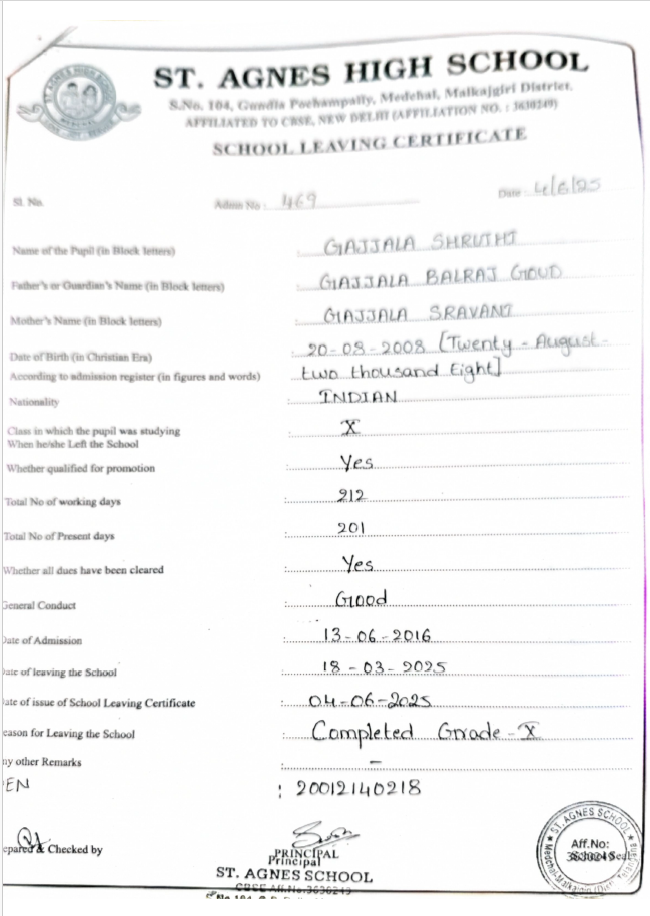 ST. AGNES HIGH SCHOOL
S.No. 104, Gundla Pochampally, Medchal, Malkajgiri District.
AFFILIATED TO CBSE, NEW DELHI (AFFILIATION NO. : 3630249)
SCHOOL LEAVING CERTIFICATE
Sl. No. Admn No : 469 Date 4/6/25
Name of the Pupil (in Block letters) : GAJJALA SHRUTHI
Father's or Guardian's Name (in Block letters) : GAJJALA BALRAJ GOUD
Mother's Name (in Block letters) : GAJJALA SRAVANI
Date of Birth (in Christian Era) : 20-08-2008 [Twenty - August -
According to admission register (in figures and words) two thousand Eight]
Nationality : INDIAN
Class in which the pupil was studying : X
When he/she Left the School
Whether qualified for promotion : Yes
Total No of working days : 212
Total No of Present days : 201
Whether all dues have been cleared : Yes
General Conduct : Good
Date of Admission : 13-06-2016
Date of leaving the School : 18-03-2025
ate of issue of School Leaving Certificate : 04-06-2025
eason for Leaving the School : Completed Grade - X
ny other Remarks : -
EN : 20012140218
epared & Checked by
PRINCIPAL
Principal
ST. AGNES SCHOOL
CBSE Aff.No:3630249
ST. AGNES SCHOOL
Aff.No:
3630249
School Seal